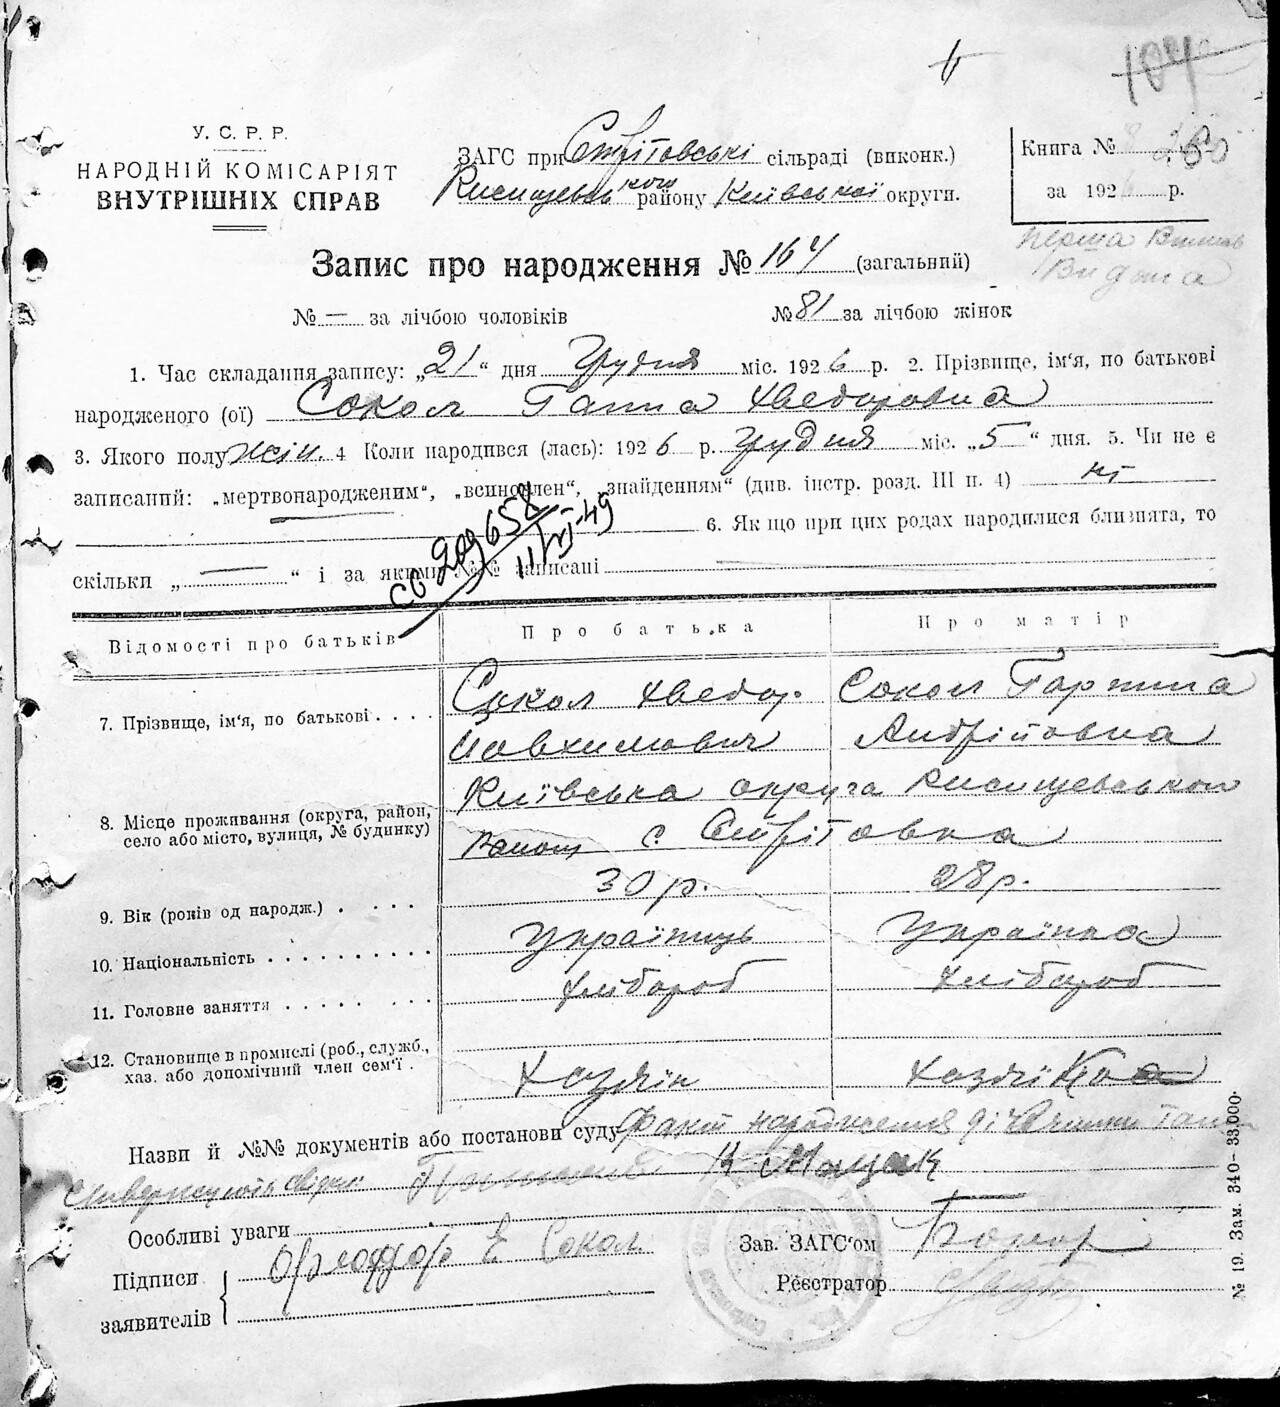 У. С. Р. Р.
НАРОДНІЙ КОМІСАРІЯТ
ВНУТРІШНІХ СПРАВ
ЗАГС при сільраді (виконк.)
району Київської округи.
Книга №
за 192 р.
перша випись
видана
Запис про народження № 164 (загальний)
№ — за лічбою чоловіків № 81 за лічбою жінок
1. Час складання запису: „21“ дня Грудня міс. 1926 р. 2. Прізвище, ім'я, по батькові
народженого (ої) Сокол Ганна Хведоровна
3. Якого полу жін. 4 Коли народився (лась): 1926 р. Грудня міс. „5“ дня. 5. Чи не є
записаний: „мертвонародженим“, „всиновлен“, „знайденням“ (див. інстр. розд. III п. 4) ні
6. Як що при цих родах народилися близнята, то
скільки „—“ і за якими №№ записані
209658
11/VI-49
Відомості про батьків
Про батька
Про матір
7. Прізвище, ім'я, по батькові
Сокол Хведор Сокол Горпина
Йовхимович Андрійовна
8. Місце проживання (округа, район,
село або місто, вулиця, № будинку)
Київська округа
с.
9. Вік (років од народж.)
30 р. 28 р.
10. Національність
Українець Українка
11. Головне заняття
Хлібороб Хлібороб
12. Становище в промислі (роб., служб.,
хаз. або допомічний член сем'ї
Хазяїн Хазяїка
Назви й №№ документів або постанови суду Факт народження дівчинки
Особливі уваги
Підписи
заявителів
Сокол
Зав. ЗАГС'ом
Реєстратор
№ 19. Зам. 340—33,000.